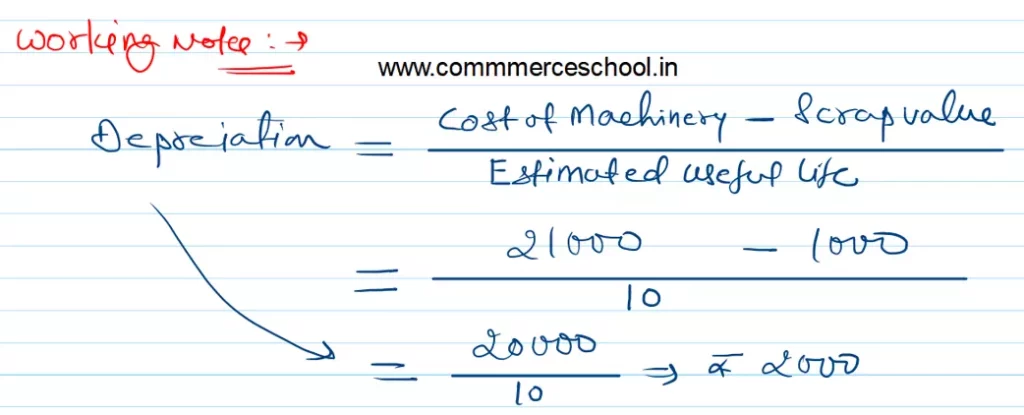 Working Notes : →
www.commmerceschool.in
Depreciation = Cost of Machinery - Scrap value
Estimated useful life
= 21000 - 1000
10
= 20000
10 ⇒ ₹ 2000